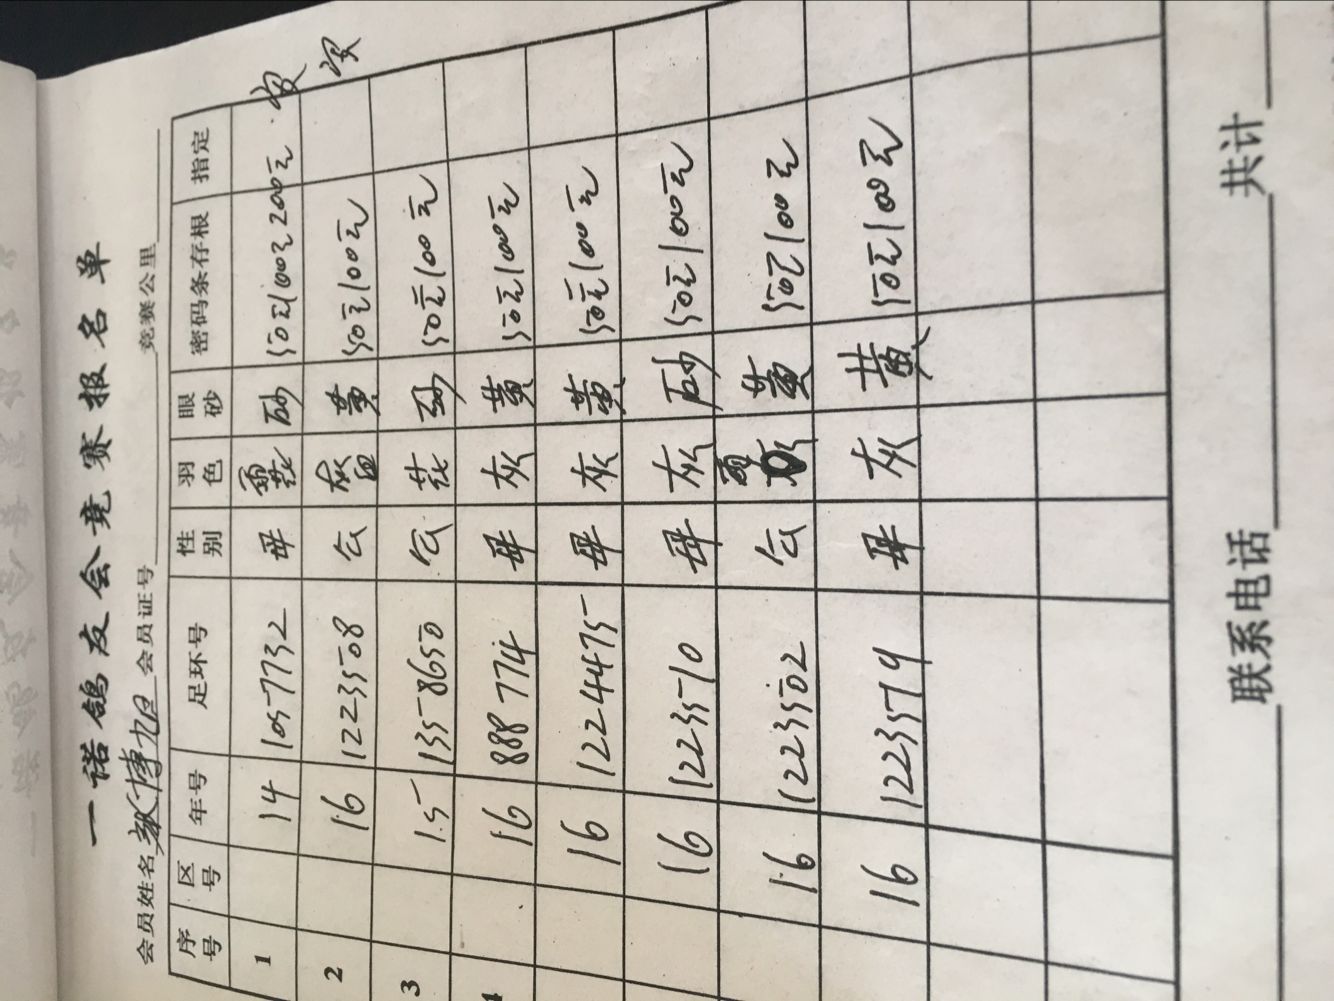 一诺鸽友会竞赛报名单
会员姓名 会员证号 竞赛公里
序号 区号 年号 足环号 性别 羽色 眼砂 密码条存根 指定
1 14 1057732 母 砂 50元100元200元
2 16 1223508 公 黄 50元100元
3 15 1358650 公 花 砂 50元100元
4 16 888774 母 灰 黄 50元100元
16 1224475 母 灰 黄 50元100元
16 1223570 母 灰 砂 50元100元
16 1223502 公 黄 50元100元
16 1223579 母 灰 黄 50元100元
联系电话 共计